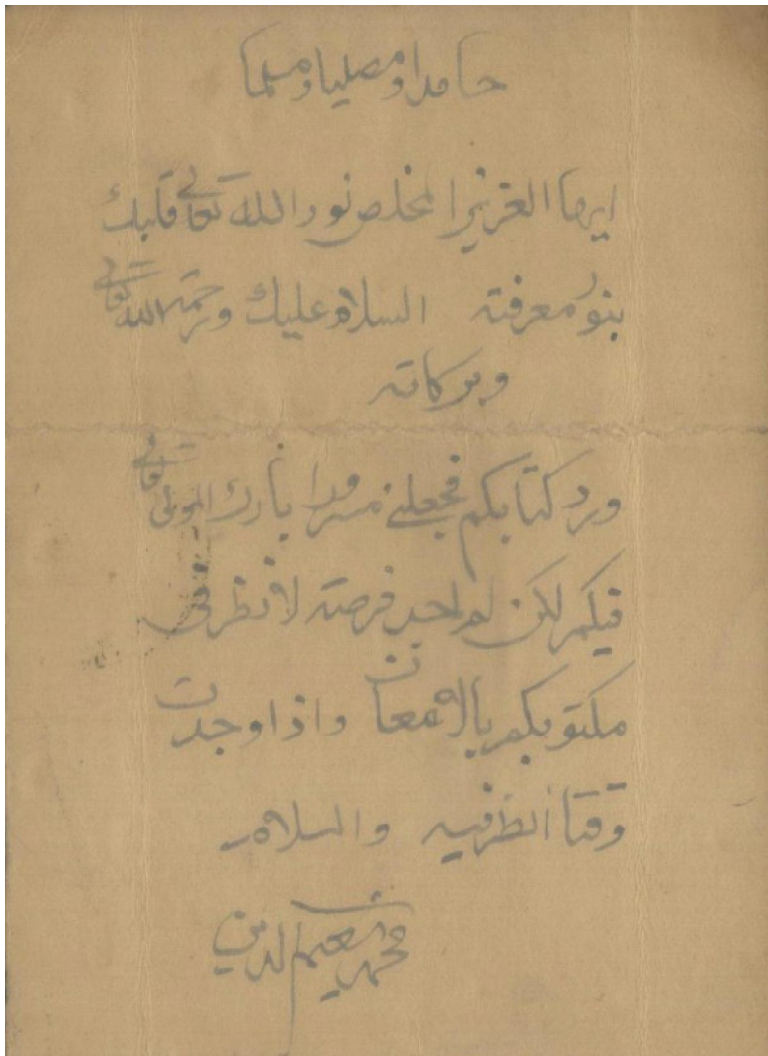 حامدا ومصليا ومسلما
ايها العزيز المخلص نور الله تعالى قلبك
بنور معرفته السلام عليك ورحمة الله تعالى
وبركاته
ورد كتابكم فجعلنى مسرورا بارك المولى تعالى
فيكم لكن لم اجد فرصة لانظر فى
مكتوبكم بالامعان واذا وجدت
وقتا انظر فيه والسلام
محمد نعيم الدين